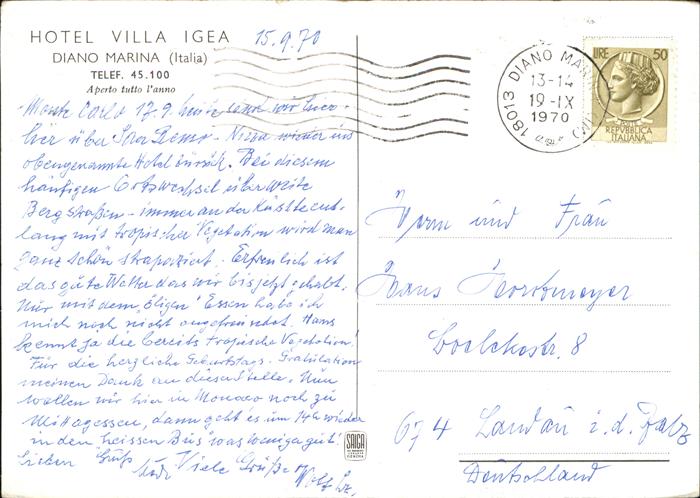 HOTEL VILLA IGEA
DIANO MARINA (Italia)
TELEF. 45.100
Aperto tutto l'anno
15.9.70
Monte Carlo 17.9. heute sind wir hier-
her über San Remo - Nizza wieder ins
obengenannte Hotel zurück. Bei diesem
häufigen Ortswechsel über weite
Bergstraßen - immer an der Küste ent-
lang mit tropischer Vegetation wird man
ganz schön strapaziert. Erfreulich ist
das gute Wetter das wir bis jetzt gehabt.
Nur mit dem "öligen" Essen habe ich
mich noch nicht angefreundet. Hans
kennt ja die bereits tropische Vegetation!
Für die herzliche Geburtstags-Gratulation
meinen Dank an dieser Stelle. Nun
wollen wir hier in Monaco noch zu
Mittagessen, dann geht es um 14h wieder
in den heissen Bus was weniger gut!
Lieben Gruß
Viele Grüße
LIRE 50
POSTE
REPVBBLICA
ITALIANA
18013 DIANO MARINA
13-14
19-IX
1970
Herrn und Frau
Hans
Boelckestr. 8
674 Landau i.d. Pfalz
Deutschland
SAIGA
GENOVA